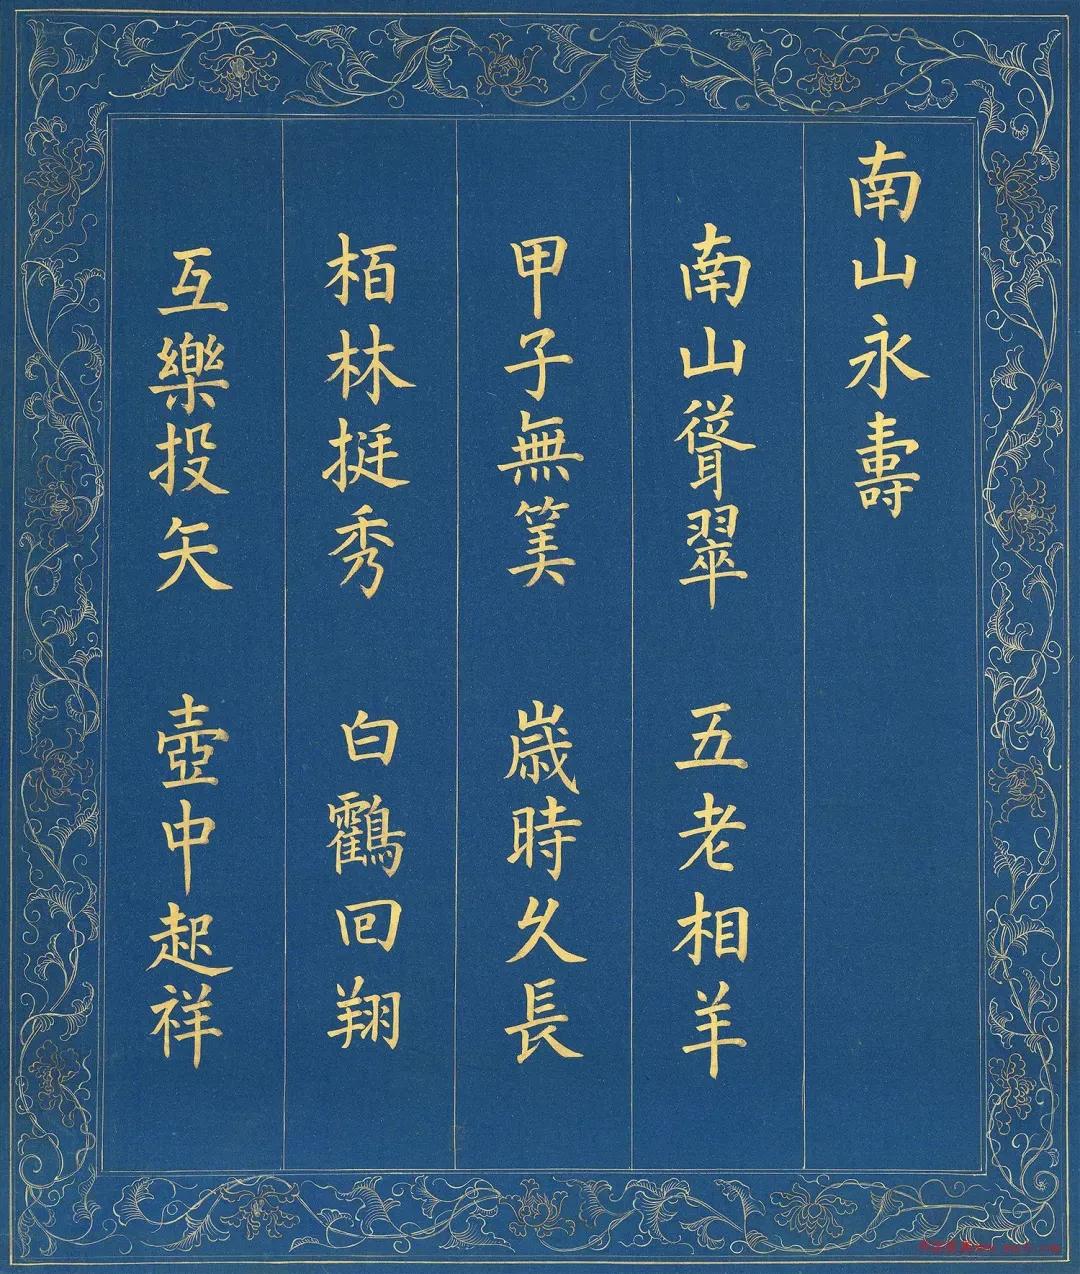 南山永壽
南山聳翠 五老相羊
甲子無算 歲時久長
栢林挺秀 白鸖回翔
互樂投矢 壺中起祥